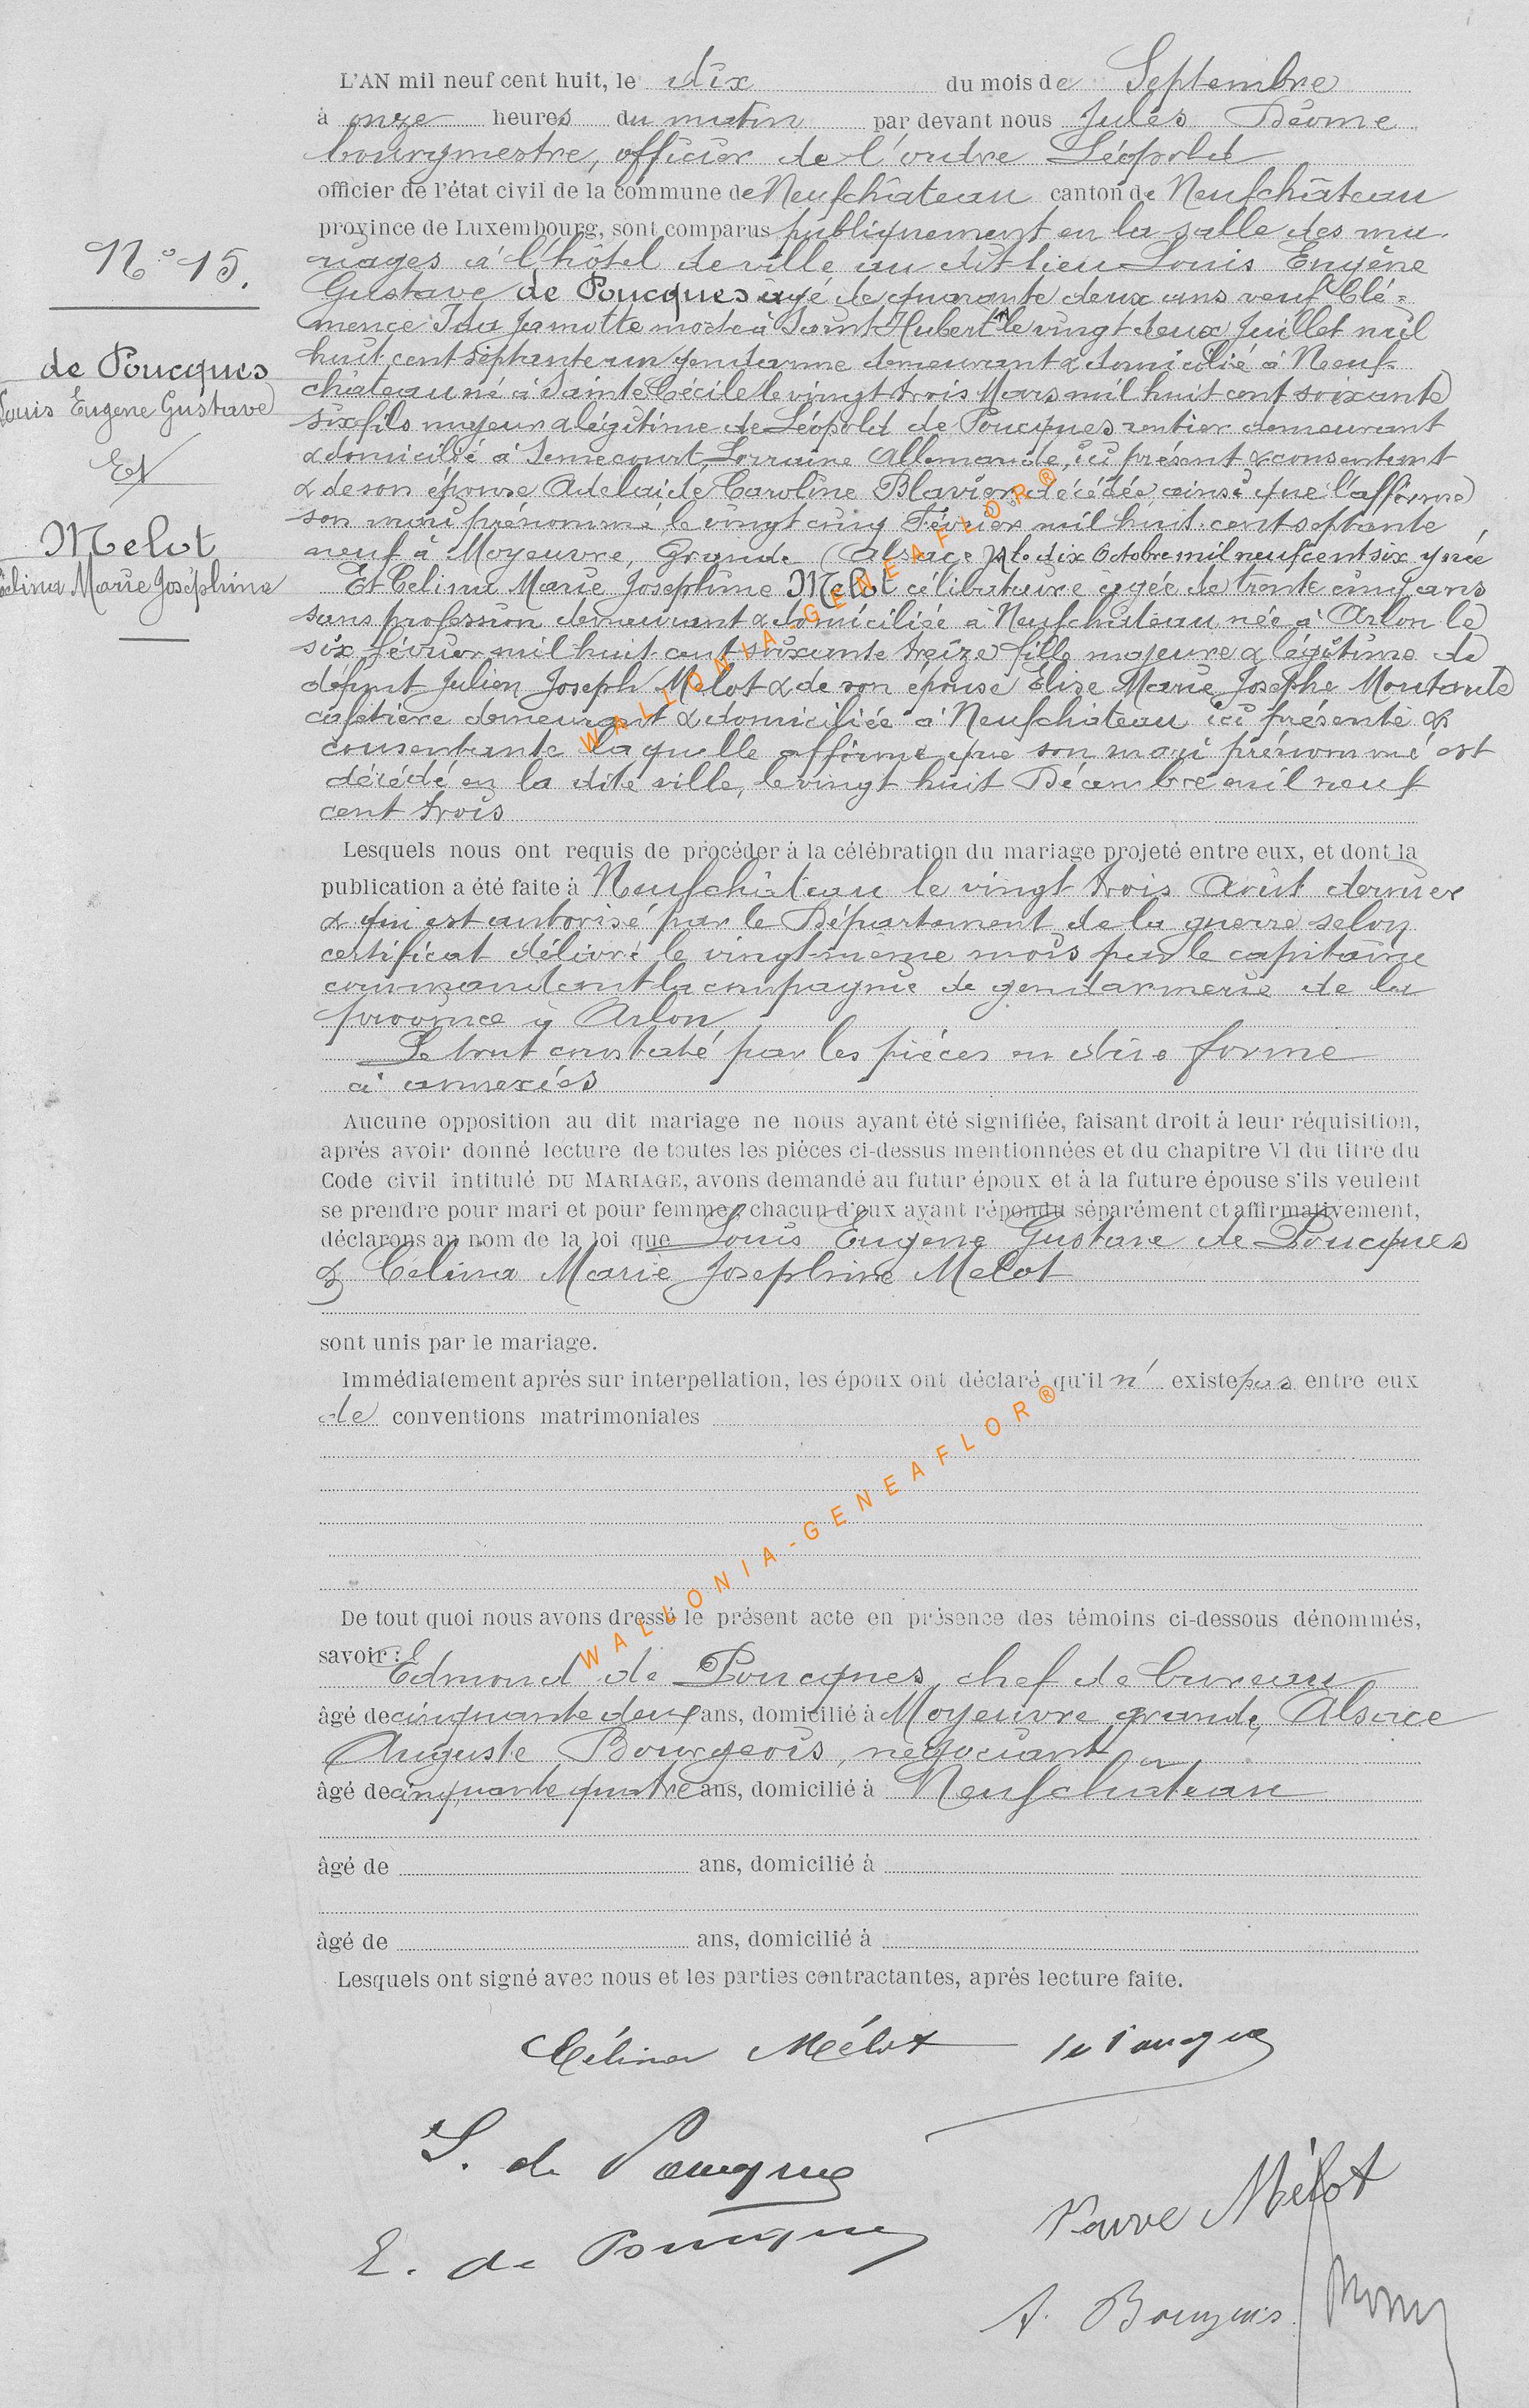 L'AN mil neuf cent huit, le dix du mois de Septembre
à onze heures du matin par devant nous Jules
bourgmestre, officier de l'ordre Léopold
officier de l'état civil de la commune de Neufchâteau canton de Neufchâteau
province de Luxembourg, sont comparus publiquement en la salle des ma-
riages à l'hôtel de ville au dit lieu Louis Eugène
Gustave de Poucques agé de quarante deux ans veuf Clé=
mence Ida Jamotte morte à Saint Hubert le vingt deux Juillet mil
huit cent septante un gendarme demeurant & domicilié à Neuf-
château né à Sainte Cécile le vingt trois Mars mil huit cent soixante
six fils majeur & légitime de Léopold de Poucques rentier demeurant
& domicilié à Semecourt, Lorraine Allemande, ici présent & consentant
& de son épouse Adelaïde Caroline Blavier décédée ainsi que l'affirme
son mari prénommé le vingt cinq Février mil huit cent septante
neuf à Moyeuvre, Grande (Alsace) le dix Octobre mil neuf cent six y née
Et Celina Marie Josephine Melot célibataire agée de trente cinq ans
sans profession demeurant & domiciliée à Neufchâteau née à Arlon le
six février mil huit cent soixante treize fille majeure & légitime de
défunt Julien Joseph Melot & de son épouse Elise Marie Josephe
cafetière demeurant & domiciliée à Neufchâteau ici présente &
consentante laquelle affirme que son mari prénommé est
décédé en la dite ville, le vingt huit Décembre mil neuf
cent trois
Lesquels nous ont requis de procéder à la célébration du mariage projeté entre eux, et dont la
publication a été faite à Neufchâteau le vingt trois Août dernier
& qui est autorisé par le Département de la guerre selon
certificat délivré le vingt même mois par le capitaine
commandant la compagnie de gendarmerie de la
province à Arlon
Le tout constaté par les pièces en due forme
ci annexées
Aucune opposition au dit mariage ne nous ayant été signifiée, faisant droit à leur réquisition,
après avoir donné lecture de toutes les pièces ci-dessus mentionnées et du chapitre VI du titre du
Code civil intitulé DU MARIAGE, avons demandé au futur époux et à la future épouse s'ils veulent
se prendre pour mari et pour femme, chacun d'eux ayant répondu séparément et affirmativement,
déclarons au nom de la loi que Louis Eugène Gustave de Poucques
& Celina Marie Josephine Melot
sont unis par le mariage.
Immédiatement après sur interpellation, les époux ont déclaré qu'il n' existe pas entre eux
de conventions matrimoniales
De tout quoi nous avons dressé le présent acte en présence des témoins ci-dessous dénommés,
savoir :
Edmond de Poucques, chef de bureau
âgé de cinquante deux ans, domicilié à Moyeuvre grande, Alsace
Auguste Bourgeois, négociant
âgé de cinquante quatre ans, domicilié à Neufchâteau
âgé de ans, domicilié à
âgé de ans, domicilié à
Lesquels ont signé avec nous et les parties contractantes, après lecture faite.
Célina Mélot de Poucques
L. de Poucques
Veuve Mélot
E. de Poucques
A. Bourgeois
N° 15.
de Poucques
Louis Eugène Gustave
Et
Melot
Célina Marie Joséphine
WALLONIA-GENEAFLOR®
WALLONIA-GENEAFLOR®